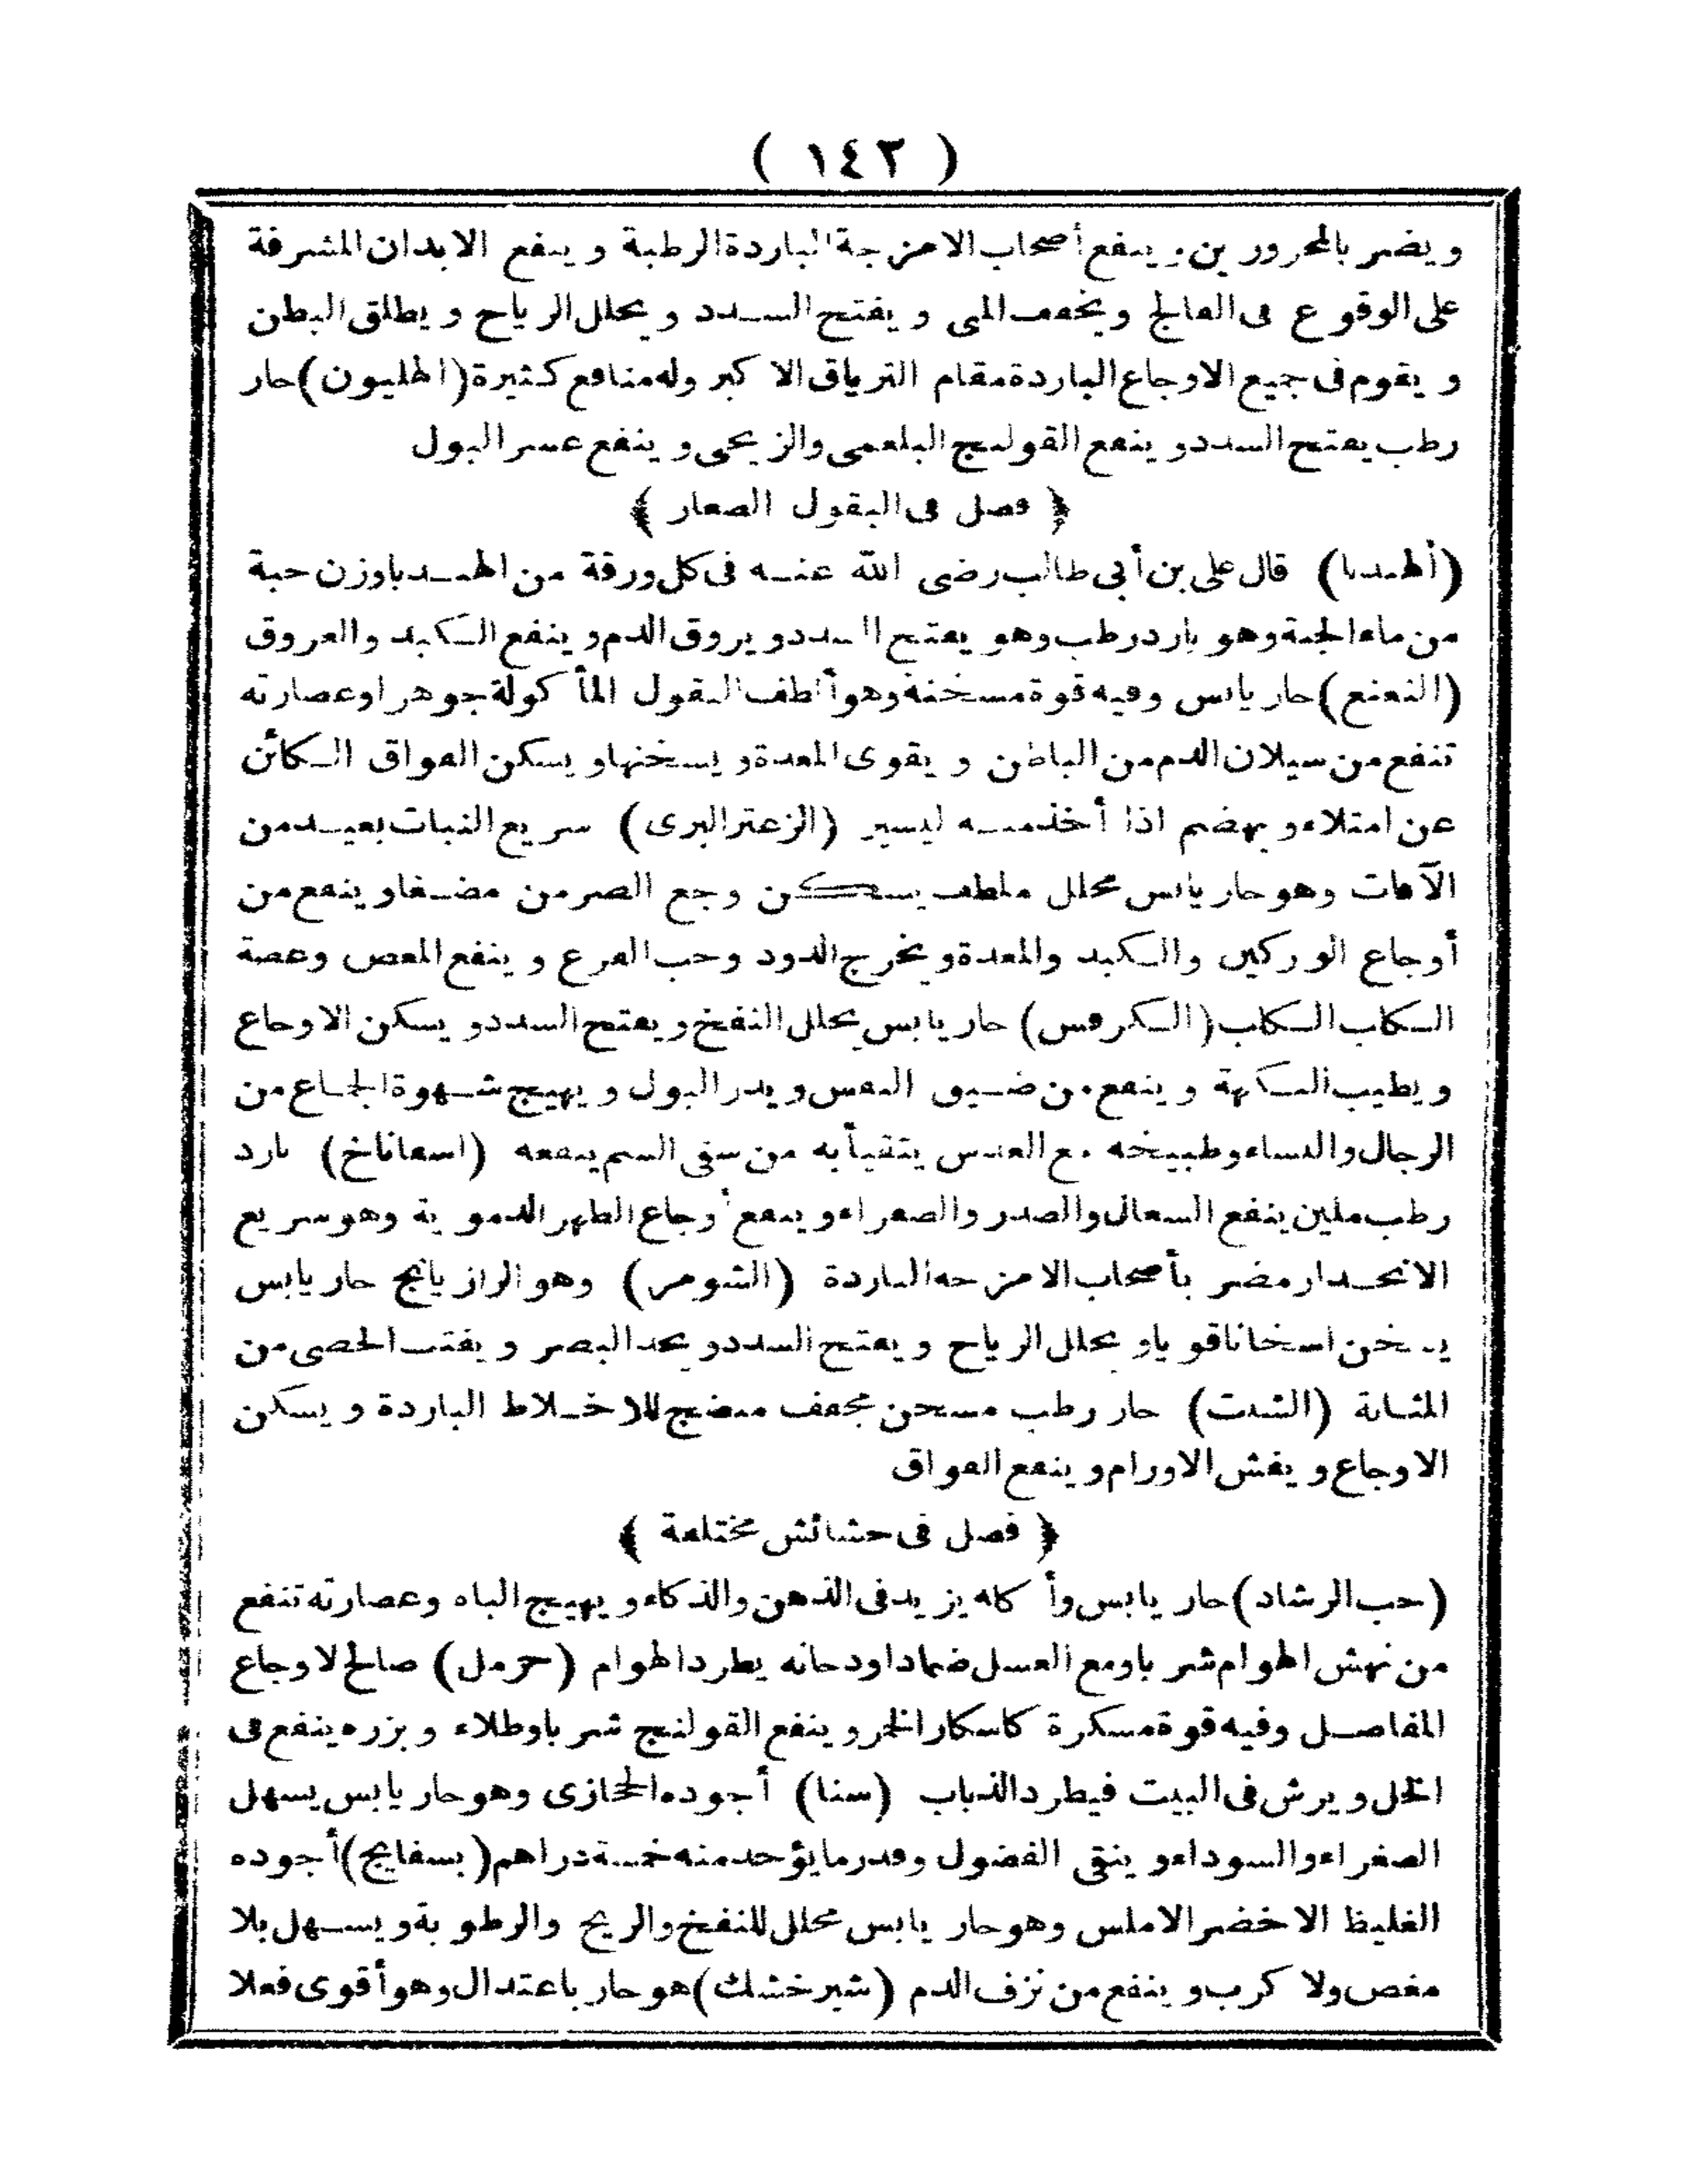 ( ١٤٢ )
ويضر بالمحرورين وينفع أصحاب الامزجة الباردة الرطبة وينفع الابدان المشرفة
على الوقوع فى الفالج ويخفف المنى ويفتح السدد ويحلل الرياح ويطلق البطن
ويقوم فى جميع الاوجاع الباردة مقام الترياق الاكبر وله منافع كثيرة (الهليون) حار
رطب يفتح السدد وينفع القولنج البلغمى والريحى وينفع عسر البول
﴿ فصل فى البقول الصغار ﴾
(الهندبا) قال على بن أبى طالب رضى الله عنه فى كل ورقة من الهندبا وزن حبة
من ماء الجنة وهو بارد رطب وهو يفتح السدد ويروق الدم وينفع الكبد والعروق
(النعنع) حار يابس وفيه قوة مسخنة وهو ألطف البقول المأكولة جوهرا وعصارته
تنفع من سيلان الدم من الباطن ويقوى المعدة ويسخنها ويسكن الفواق الكائن
عن امتلاء ويهضم اذا أخذ منه ليسير (الزعتر البرى) سريع النبات بعيد من
الآفات وهو حار يابس محلل ملطف يسكن وجع الضرس مضغا وينفع من
أوجاع الوركين والكبد والمعدة ويخرج الدود وحب القرع وينفع المغص وعضة
الكلب الكلب (الكرفس) حار يابس يحلل النفخ ويفتح السدد ويسكن الاوجاع
ويطيب النكهة وينفع من ضيق النفس ويدر البول ويهيج شهوة الجماع من
الرجال والنساء وطبيخه مع العدس يتقيأ به من سقى السم ينفعه (اسفاناخ) بارد
رطب ملين ينفع السعال والصدر والصفراء وينفع أوجاع الظهر الدموية وهو سريع
الانحدار مضر بأصحاب الامزجه الباردة (الشومر) وهو الرازيانج حار يابس
يسخن اسخانا قويا ويحلل الرياح ويفتح السدد ويحد البصر ويفتت الحصى من
المثانة (الشبت) حار رطب مسخن مجفف منضج للاخلاط الباردة ويسكن
الاوجاع ويفش الاورام وينفع الفواق
﴿ فصل فى حشائش مختلفة ﴾
(حب الرشاد) حار يابس وأكله يزيد فى الذهن والذكاء ويهيج الباه وعصارته تنفع
من نهش الهوام شربا ومع العسل ضمادا ودخانه يطرد الهوام (حرمل) صالح لاوجاع
المفاصل وفيه قوة مسكرة كاسكار الخمر وينفع القولنج شربا وطلاء وبزره ينفع فى
الخل ويرش فى البيت فيطرد الذباب (سنا) أجوده الحجازى وهو حار يابس يسهل
الصفراء والسوداء وينقى الفضول وقدر ما يؤخذ منه خمسة دراهم (بسفايج) أجوده
الغليظ الاخضر الاملس وهو حار يابس محلل للنفخ والريح والرطوبة ويسهل بلا
مغص ولا كرب وينفع من نزف الدم (شيرخشك) هو حار باعتدال وهو أقوى فعلا